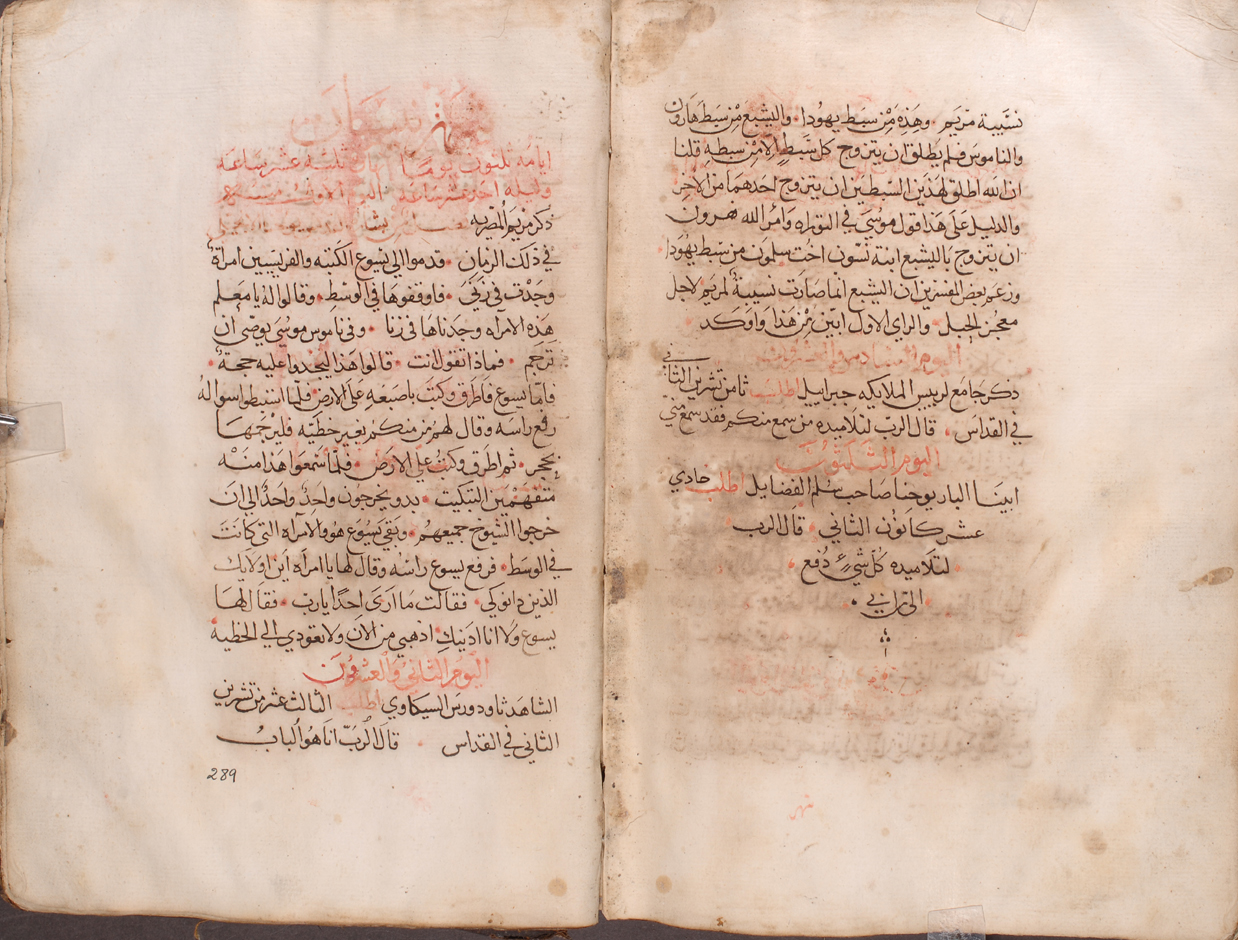 نسيبة مريم وهذه من سبط يهودا والیشبع من سبط هارون
والناموس فلم يطلق ان يتزوج كل سبط الا من سبطه قلنا
ان الله اطلق لهذين السبطين ان يتزوج احدهما من الاخر
والدليل على هذا قول موسى في التوراه وامر الله هرون
ان يتزوج باليشبع ابنة اخت سلمون من سبط يهودا
وزعم بعض المفسرين ان اليشبع انما صارت نسيبة لمريم لاجل
معجز الحبل والراي الاول ابين من هذا واوكد
اليوم السادس والعشرون
ذكر جامع لرييس الملايكه جبراييل اطلب ثامن تشرين الثاني
في القداس قال الرب لتلاميذه من سمع منكم فقد سمع مني
اليوم الثلثون
ابينا البار يوحنا صاحب سلم الفضايل اطلب حادي
عشر كانون الثاني قال الرب
لتلاميذه كل شي دفع
الي من ابي
شهر نيسان
ايامه ثلثون يوما ثلثة عشر ساعه
وليله احد عشر ساعه اليوم الاول
ذكر مريم المصريه
في ذلك الزمان قدموا الي يسوع الكتبه والفريسيين امراة
وجدت في زنى فاوقفوها في الوسط وقالوا له يا معلم
هذه الامراه وجدناها في زنا وفي ناموس موسى يوصى ان
ترجم فماذا تقول انت قالوا هذا ليجدوا عليه حجة
فاما يسوع فاطرق وكتب باصبعه على الارض فلما استبطوا سواله
رفع راسه وقال لهم من منكم بغير خطيه فليرجمها
بحجر ثم اطرق وكتب على الارض فلما سمعوا هذا منه
التبكيت بدو يخرجون واحد واحد الى ان
خرجوا الشيوخ جميعهم وبقي يسوع هو والامراه التي كانت
في الوسط فرفع يسوع راسه وقال لها يا امراه اين اولايك
الذين دانوكي فقالت ما ارى احدا يارب فقال لها
يسوع ولا انا ادينك اذهبي من الان ولا تعودي الي الخطيه
اليوم الثاني والعشرون
الشاهد ثاودورس السيكاوي اطلب الثالث عشر من تشرين
الثاني في القداس قال الرب انا هو الباب
289